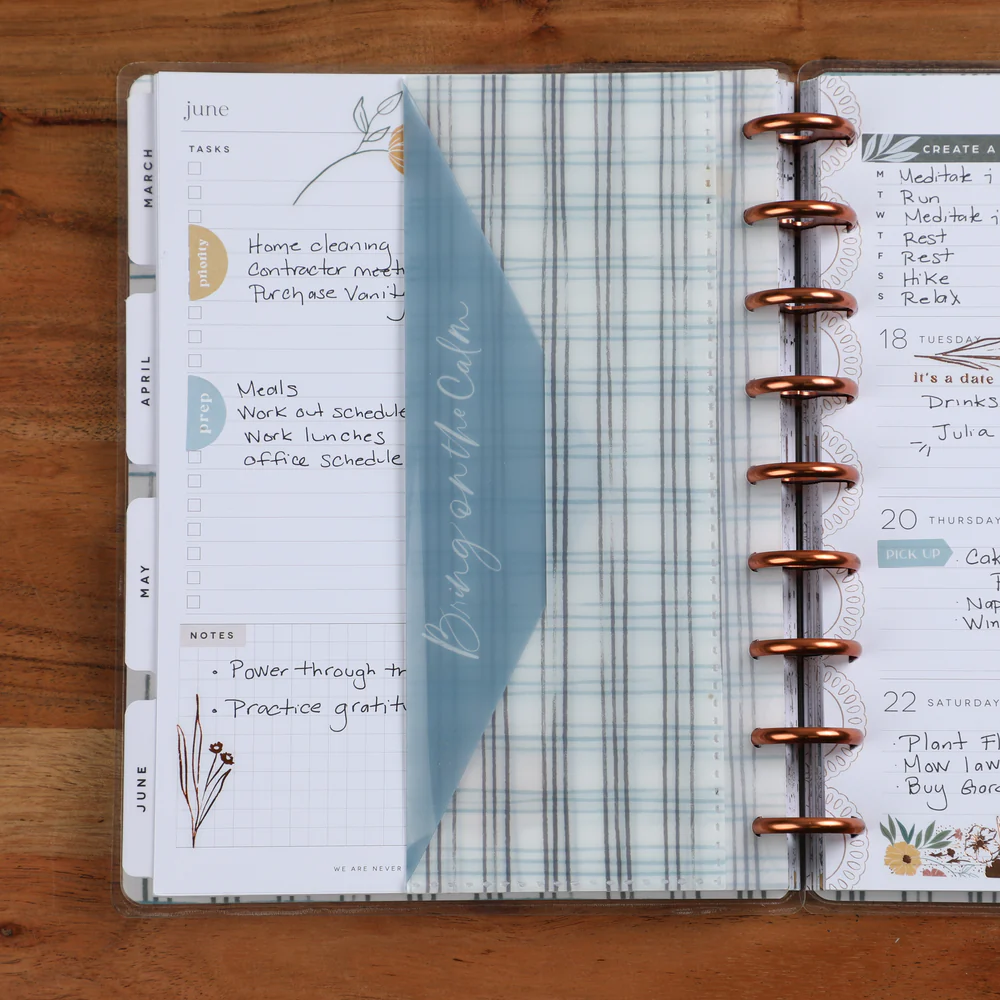 MARCH
APRIL
MAY
JUNE
june
TASKS
priority
Home cleaning
Contractor meet
Purchase Vanity
prep
Meals
Work out schedule
Work lunches
office schedule
NOTES
• Power through
• Practice gratit
WE ARE NEVER
Bring on the Calm
CREATE A
M Meditate
T Run
W Meditate
T Rest
F Rest
S Hike
S Relax
18 TUESDAY
it's a date
Drinks
Julia
20 THURSDAY
PICK UP
· Cak
· Nap
· Win
22 SATURDAY
· Plant Fl
· Mow law
· Buy